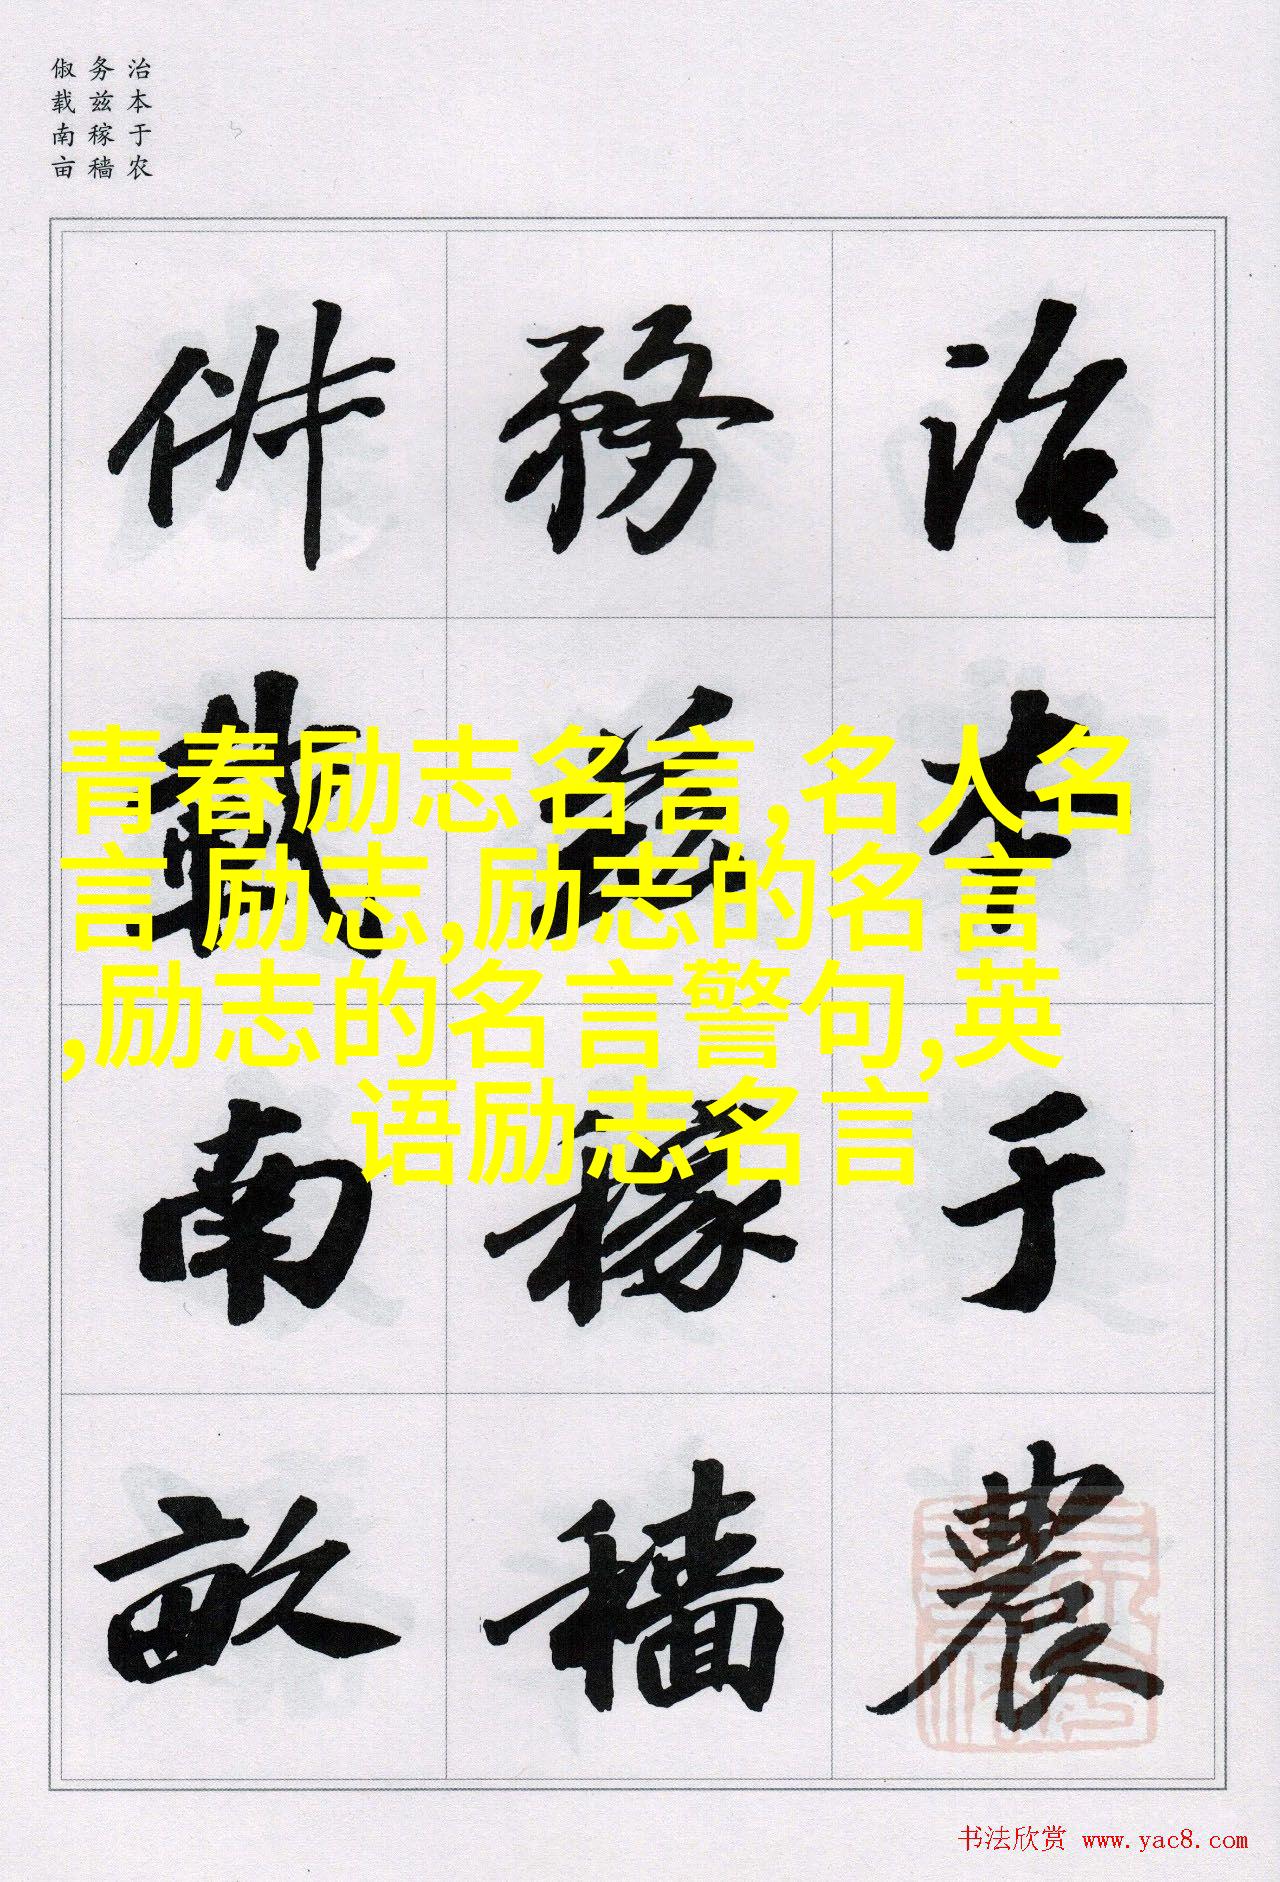 治本于农
务兹稼穑
俶载南亩
治本于農
務兹稼穡
俶載南畝
青春励志名言,名人名
言 励志,励志的名言
,励志的名言警句,英
语励志名言
书法欣赏 www.yac8.com